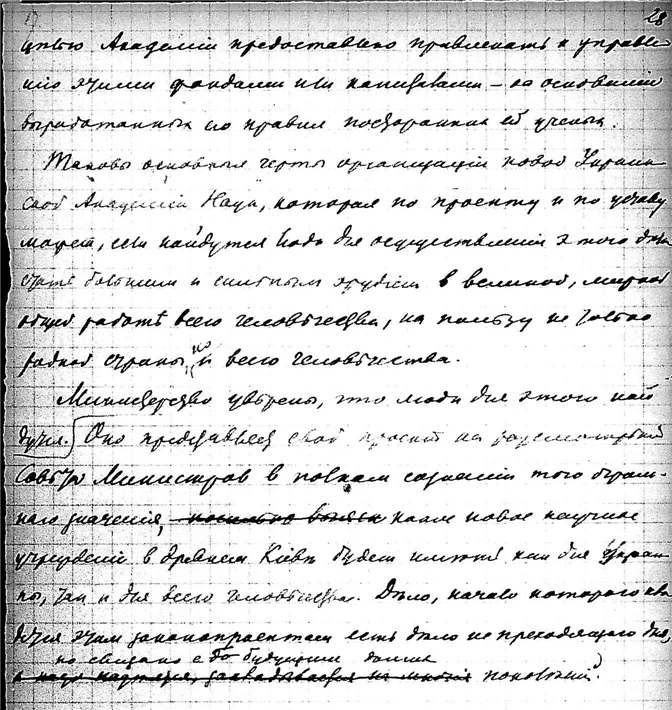 28
цѣлью Академіи предоставлено привлекать к управле-
нію этими фондами или капиталами – на основаніи
выработанных ею правил посторонних ей ученых.
Таковы основныя черты организаціи новой Украин-
ской Академіи Наук, которая по проекту и по уставу
может, если найдутся люди для осуществленія этого дѣла
стать большим и сильным орудіем в великой, мирной
общей работѣ всего человѣчества, на пользу не только
родной страны, но и всего человѣчества.
Министерство увѣрено, что люди для этого най
дутся. Оно представляет свой проект на разсмотрѣніе
Совѣта Министров в полном сознаніи того огром-
наго значенія, какое новое научное
учрежденіе в древнем Кіевѣ будет имѣть как для Украи-
ны, так и для всего человѣчества. Дѣло, начало которого кла
дется этим законопроектом есть дѣло не преходящаго дня,
но связано с будущим долгих
поколѣній.